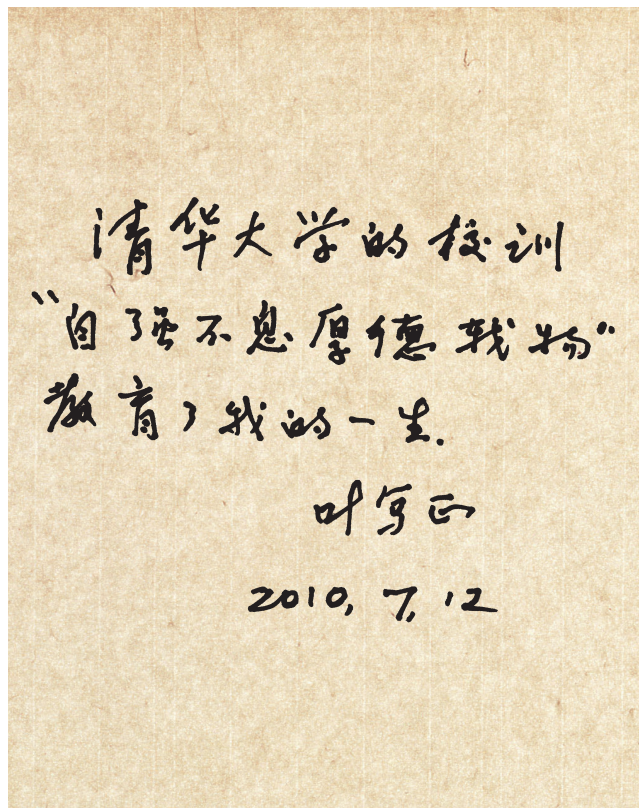 清华大学的校训
“自强不息厚德载物”
教育了我的一生.
叶宫正
2010.7.12